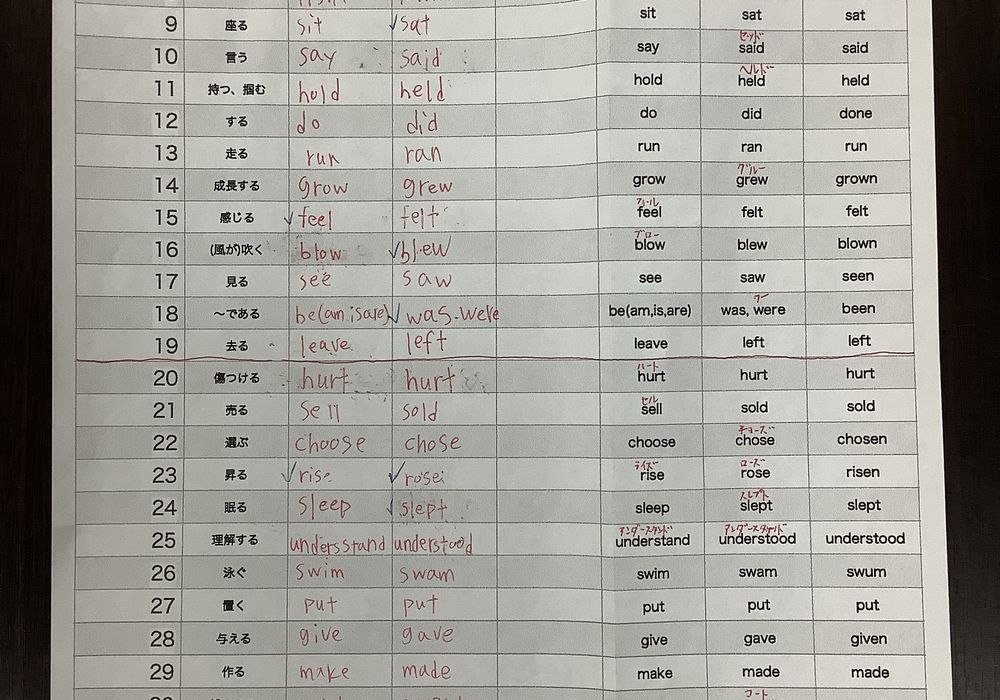 9 座る sit sat sit sat sat
セッド
10 言う say said say said said
ヘルド
11 持つ、掴む hold held hold held held
12 する do did do did done
13 走る run ran run ran run
グルー
14 成長する grow grew grow grew grown
フィール
15 感じる feel felt feel felt felt
ブロー
16 (風が)吹く blow blew blow blew blown
17 見る see saw see saw seen
ワー
18 ～である be(am.isare) was.were be(am,is,are) was, were been
19 去る leave left leave left left
ハート
20 傷つける hurt hurt hurt hurt hurt
セル
21 売る sell sold sell sold sold
チョーズ
22 選ぶ choose chose choose chose chosen
ライズ ローズ
23 昇る rise rose rise rose risen
スレプト
24 眠る sleep slept sleep slept slept
アンダースタンド アンダースタッド
25 理解する undersstand understood understand understood understood
26 泳ぐ swim swam swim swam swum
27 置く put put put put put
28 与える give gave give gave given
29 作る make made make made made
コート